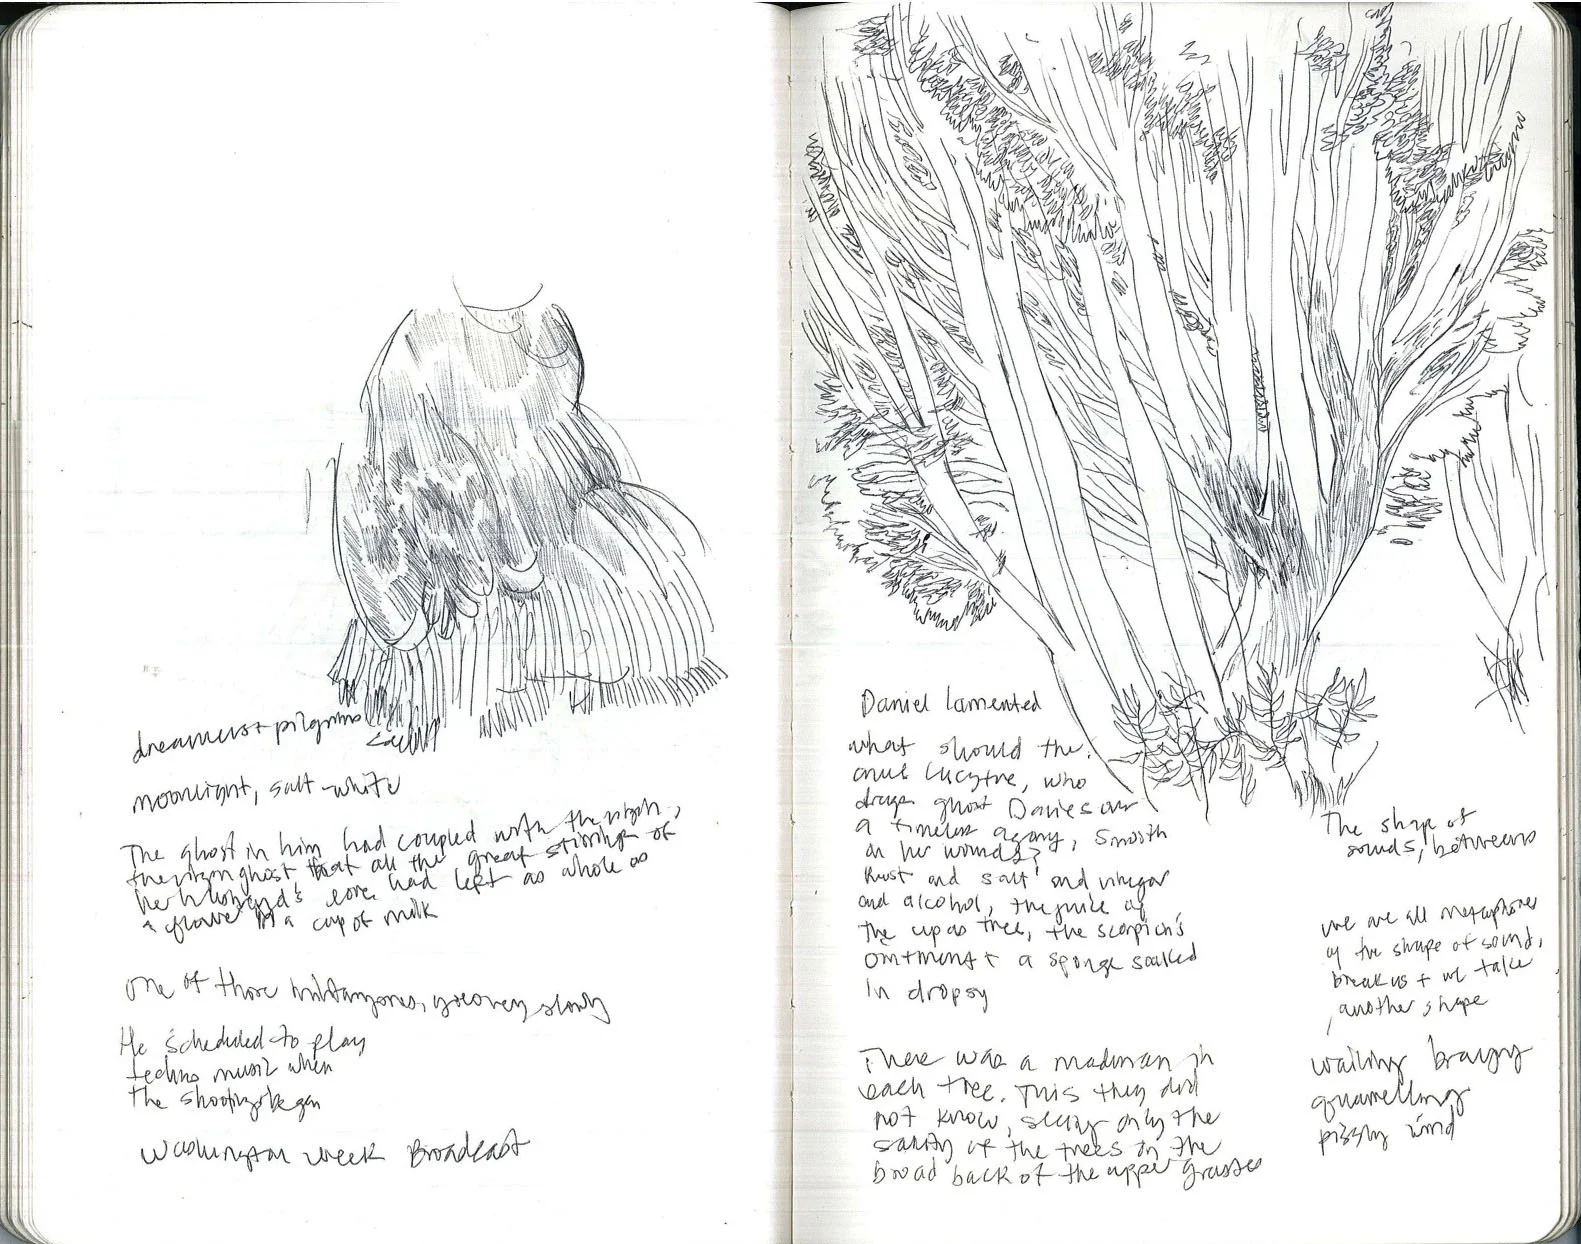 dreamers + pilgrims
moonlight, salt-white
The ghost in him had coupled with the virgin,
the virgin ghost that all the great stirrings of
her husband's love had left as whole as
a flower in a cup of milk
one of those
slowly
He scheduled to play
techno music when
the shooting began
Washington Week Broadcast
Daniel lamented
what should the
cruel who
drags ghost Davies over
a timeless agony, smooth
on her wounds?
Rust and salt and vinegar
and alcohol, the juice of
the upas tree, the scorpion's
ointment + a sponge soaked
in dropsy
There was a madman in
each tree. This they did
not know, seeing only the
sanity of the trees on the
broad back of the upper grasses
The shape of
sounds, between
we are all metaphors
of the shape of sound,
break us + we take
another shape
wailing
quarrelling
wind